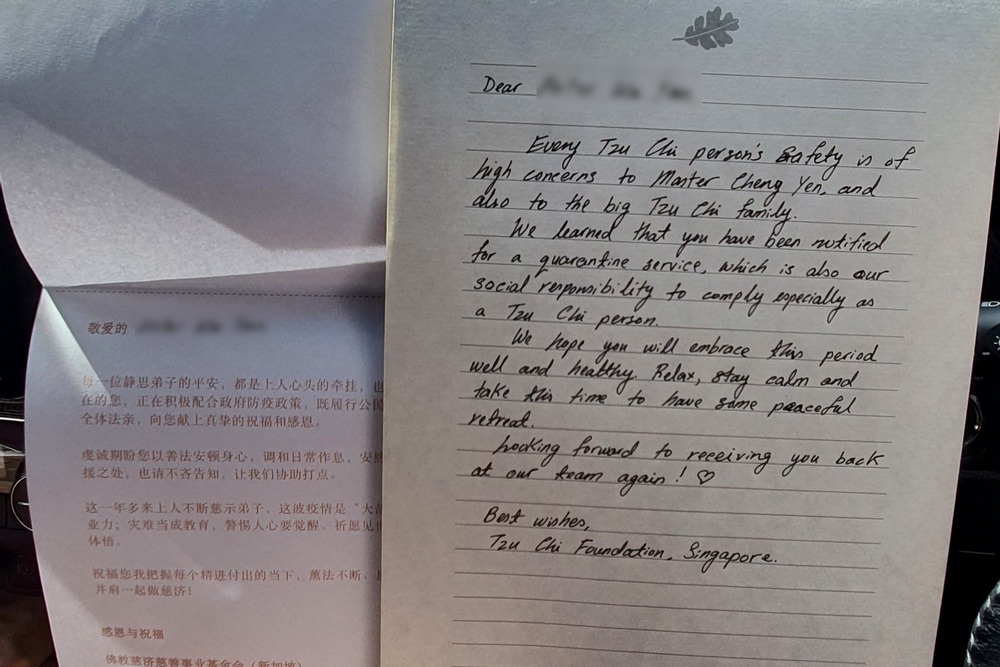 敬爱的
每一位静思弟子的平安，都是上人心头的牵挂，也
在的您，正在积极配合政府防疫政策，既履行公民
全体法亲，向您献上真挚的祝福和感恩。
虔诚期盼您以善法安顿身心，调和日常作息，安然
援之处，也请不吝告知，让我们协助打点。
这一年多来上人不断慈示弟子，这波疫情是“大
业力；灾难当成教育，警惕人心要觉醒。祈愿见
体悟。
祝福您我把握每个精进付出的当下，薰法不断，
并肩一起做慈济！
感恩与祝福
佛教慈济慈善事业基金会（新加坡）
Dear
Every Tzu Chi person's safety is of
high concerns to Master Cheng Yen, and
also to the big Tzu Chi family.
We learned that you have been notified
for a quarantine service, which is also our
social responsibility to comply especially as
a Tzu Chi person.
We hope you will embrace this period
well and healthy. Relax, stay calm and
take this time to have some peaceful
retreat.
Looking forward to receiving you back
at our team again! ♡
Best wishes,
Tzu Chi Foundation, Singapore.